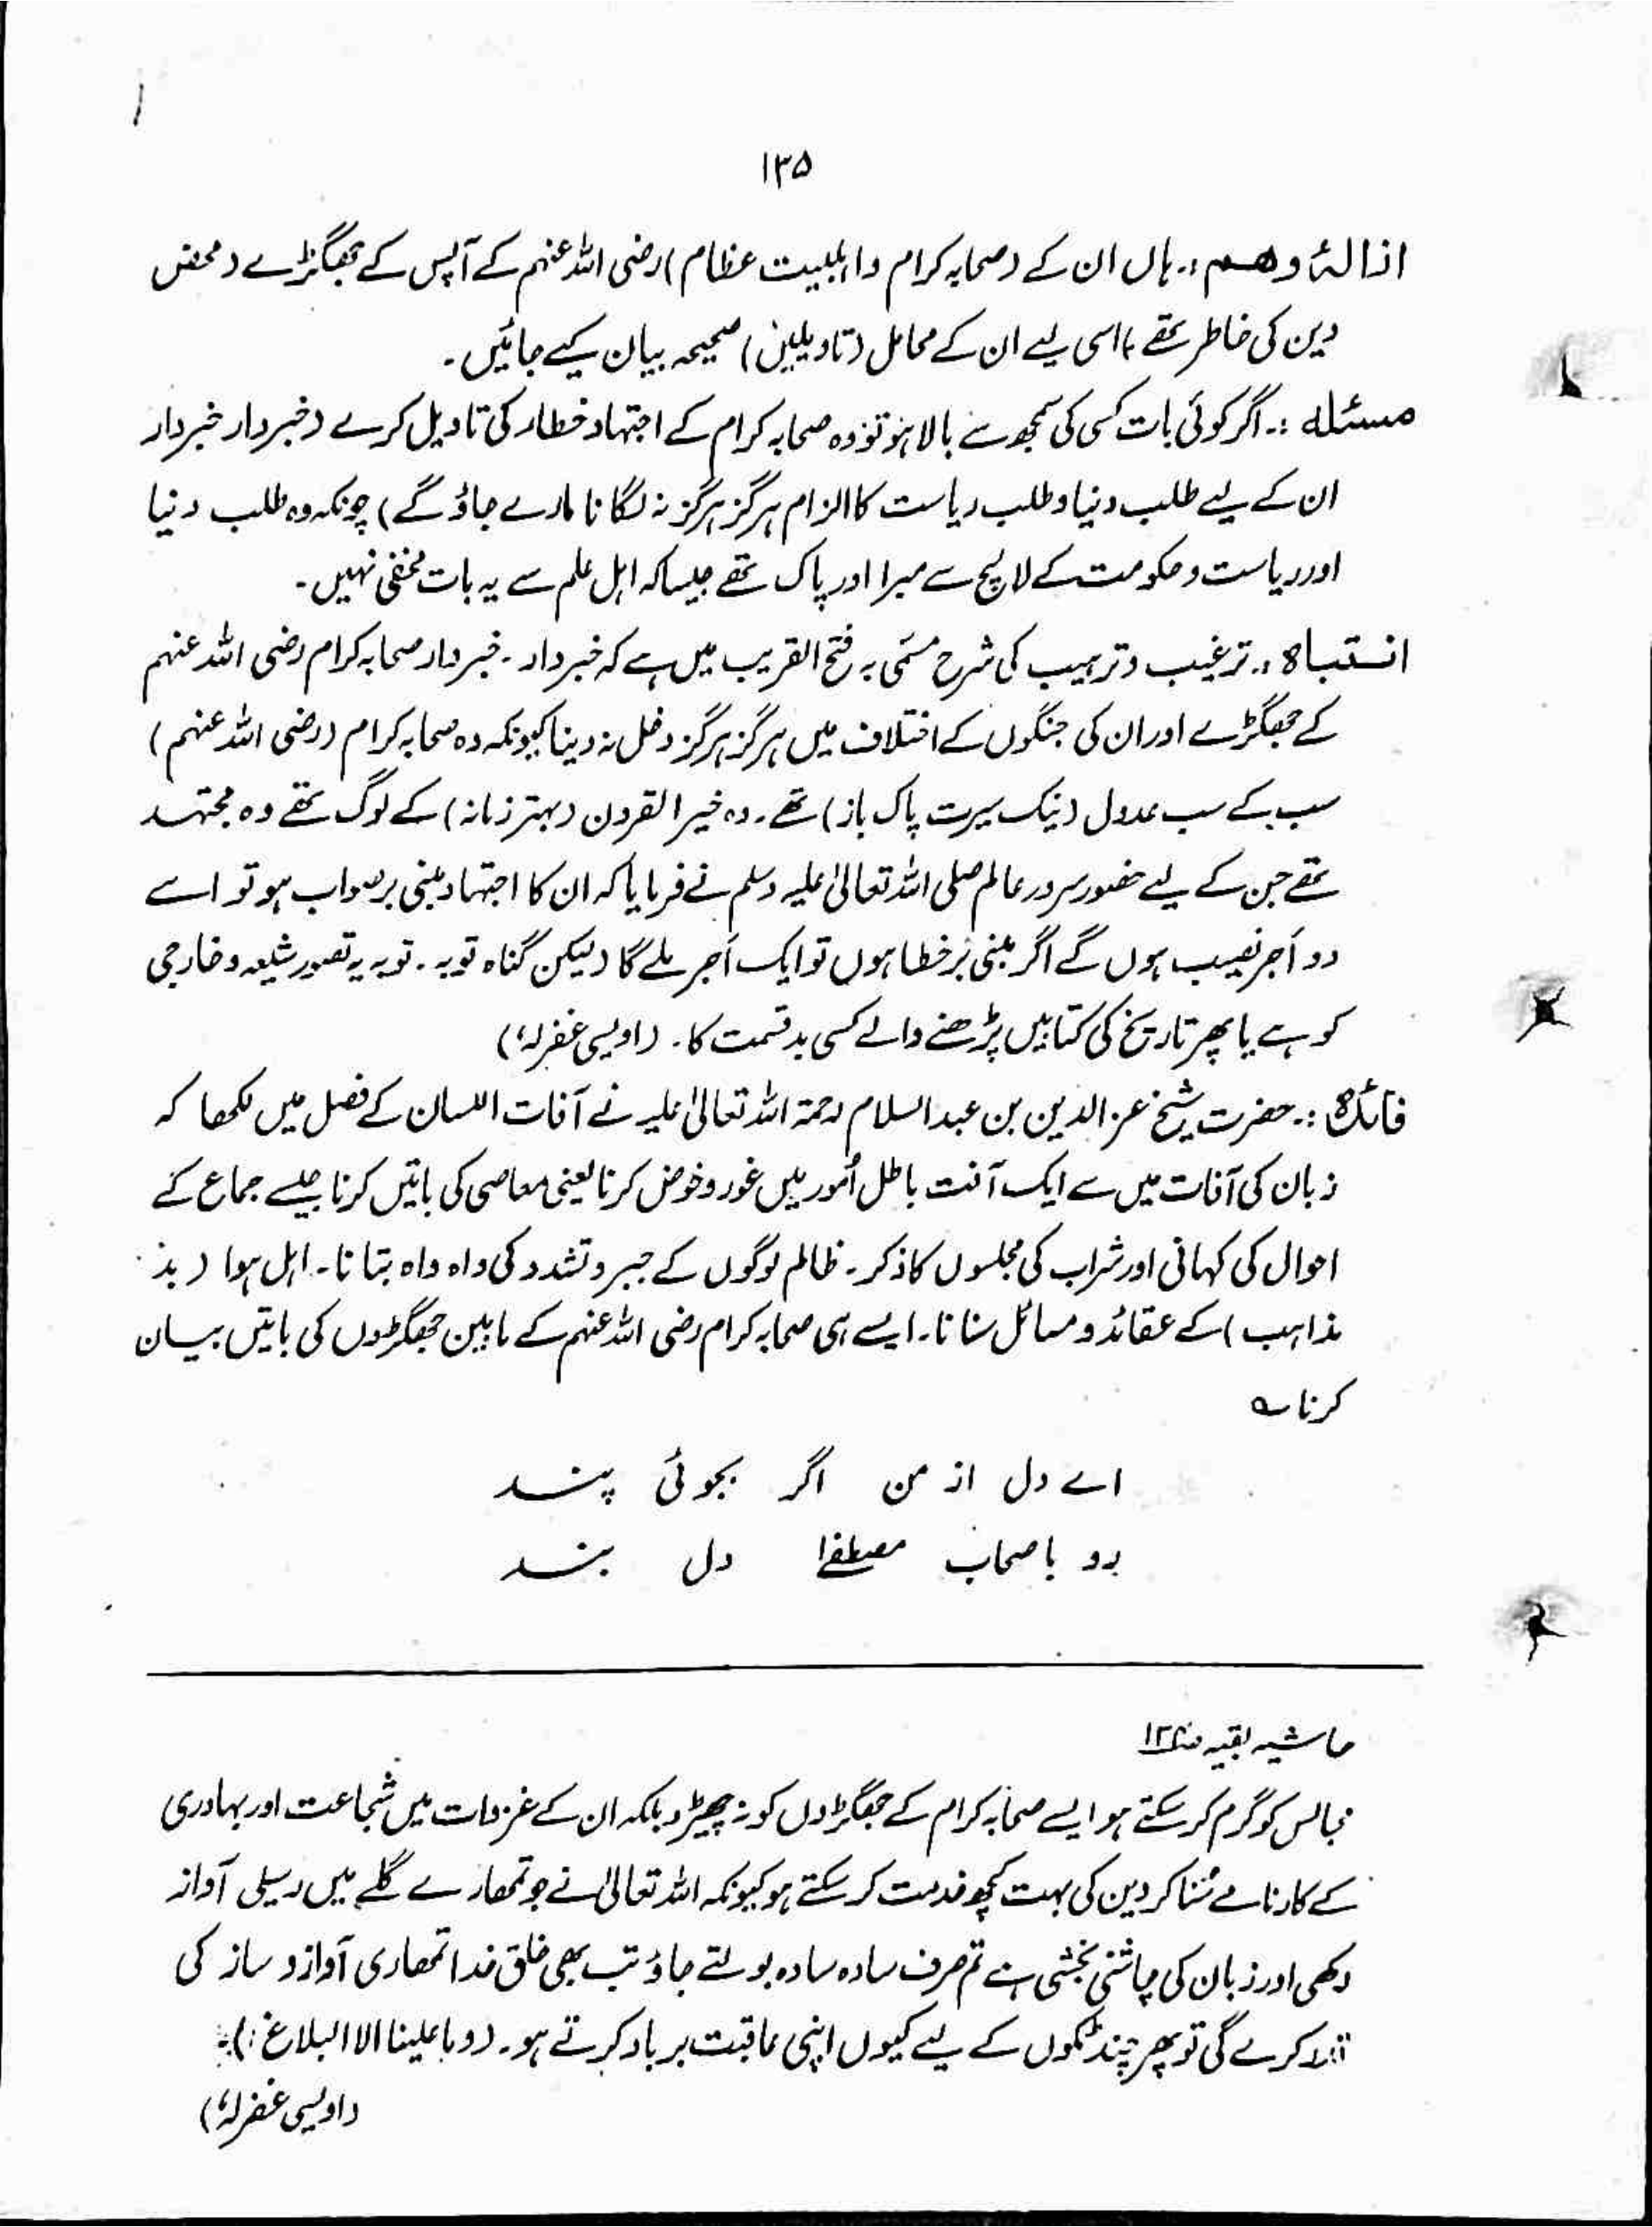 ۱۳۵
ازالۂ وھم :۔ ہاں ان کے (صحابہ کرام و اہلبیت عظام) رضی اللہ عنہم کے آپس کے جھگڑے (محض
دین کی خاطر تھے) اسی لیے ان کے محامل (تاویلیں) صحیحہ بیان کیے جائیں۔
مسئلہ :۔ اگر کوئی بات کسی کی سمجھ سے بالا ہو تو وہ صحابہ کرام کے اجتہاد خطاء کی تاویل کرے (خبردار خبردار
ان کے لیے طلب دنیا و طلب ریاست کا الزام ہرگز ہرگز نہ لگانا مارے جاؤ گے) چونکہ وہ طلب دنیا
اور ریاست و حکومت کے لالچ سے مبرا اور پاک تھے جیسا کہ اہل علم سے یہ بات مخفی نہیں۔
انتباہ :۔ ترغیب و ترہیب کی شرح مسمّی بہ فتح القریب میں ہے کہ خبردار۔ خبردار صحابہ کرام رضی اللہ عنہم
کے جھگڑے اور ان کی جنگوں کے اختلاف میں ہرگز ہرگز دخل نہ دینا کیونکہ وہ صحابہ کرام (رضی اللہ عنہم)
سب کے سب عدول (نیک سیرت پاک باز) تھے۔ وہ خیر القرون (بہتر زمانہ) کے لوگ تھے وہ مجتہد
تھے جن کے لیے حضور سرور عالم صلی اللہ تعالیٰ علیہ وسلم نے فرمایا کہ ان کا اجتہاد مبنی بر صواب ہو تو اسے
دو اَجر نصیب ہوں گے اگر مبنی بَر خطا ہوں تو ایک اَجر ملے گا (لیکن گناہ توبہ۔ توبہ یہ تصور شیعہ و خارجی
کو ہے یا پھر تاریخ کی کتابیں پڑھنے والے کسی بدقسمت کا۔ (اویسی غفرلہٗ)
فائدہ :۔ حضرت شیخ عز الدین بن عبد السلام رحمۃ اللہ تعالیٰ علیہ نے آفات اللسان کے فصل میں لکھا کہ
زبان کی آفات میں سے ایک آفت باطل اُمور میں غور و خوض کرنا یعنی معاصی کی باتیں کرنا جیسے جماع کے
احوال کی کہانی اور شراب کی مجلسوں کا ذکر۔ ظالم لوگوں کے جبر و تشدد کی واہ واہ بتانا۔ اہل ہوا (بد
مذاہب) کے عقائد و مسائل سنانا۔ ایسے ہی صحابہ کرام رضی اللہ عنہم کے مابین جھگڑوں کی باتیں بیان
کرنا ؎
اے دل از من اگر بجوئی پند
رو باصحاب مصطفےٰ دل بند
حاشیہ بقیہ
مجالس کو گرم کر سکتے ہو ایسے صحابہ کرام کے جھگڑوں کو نہ چھیڑو بلکہ ان کے غزوات میں شجاعت اور بہادری
کے کارنامے سُنا کر دین کی بہت کچھ خدمت کر سکتے ہو کیونکہ اللہ تعالیٰ نے جو تمھارے گلے میں رسیلی آواز
رکھی اور زبان کی چاشنی بخشی ہے تم صرف سادہ سادہ بولتے جاؤ تب بھی خلق خدا تمھاری آواز و ساز کی
کرے گی تو پھر چند ٹکوں کے لیے کیوں اپنی عاقبت برباد کرتے ہو۔ (وما علینا الا البلاغ)
(اویسی غفرلہٗ)